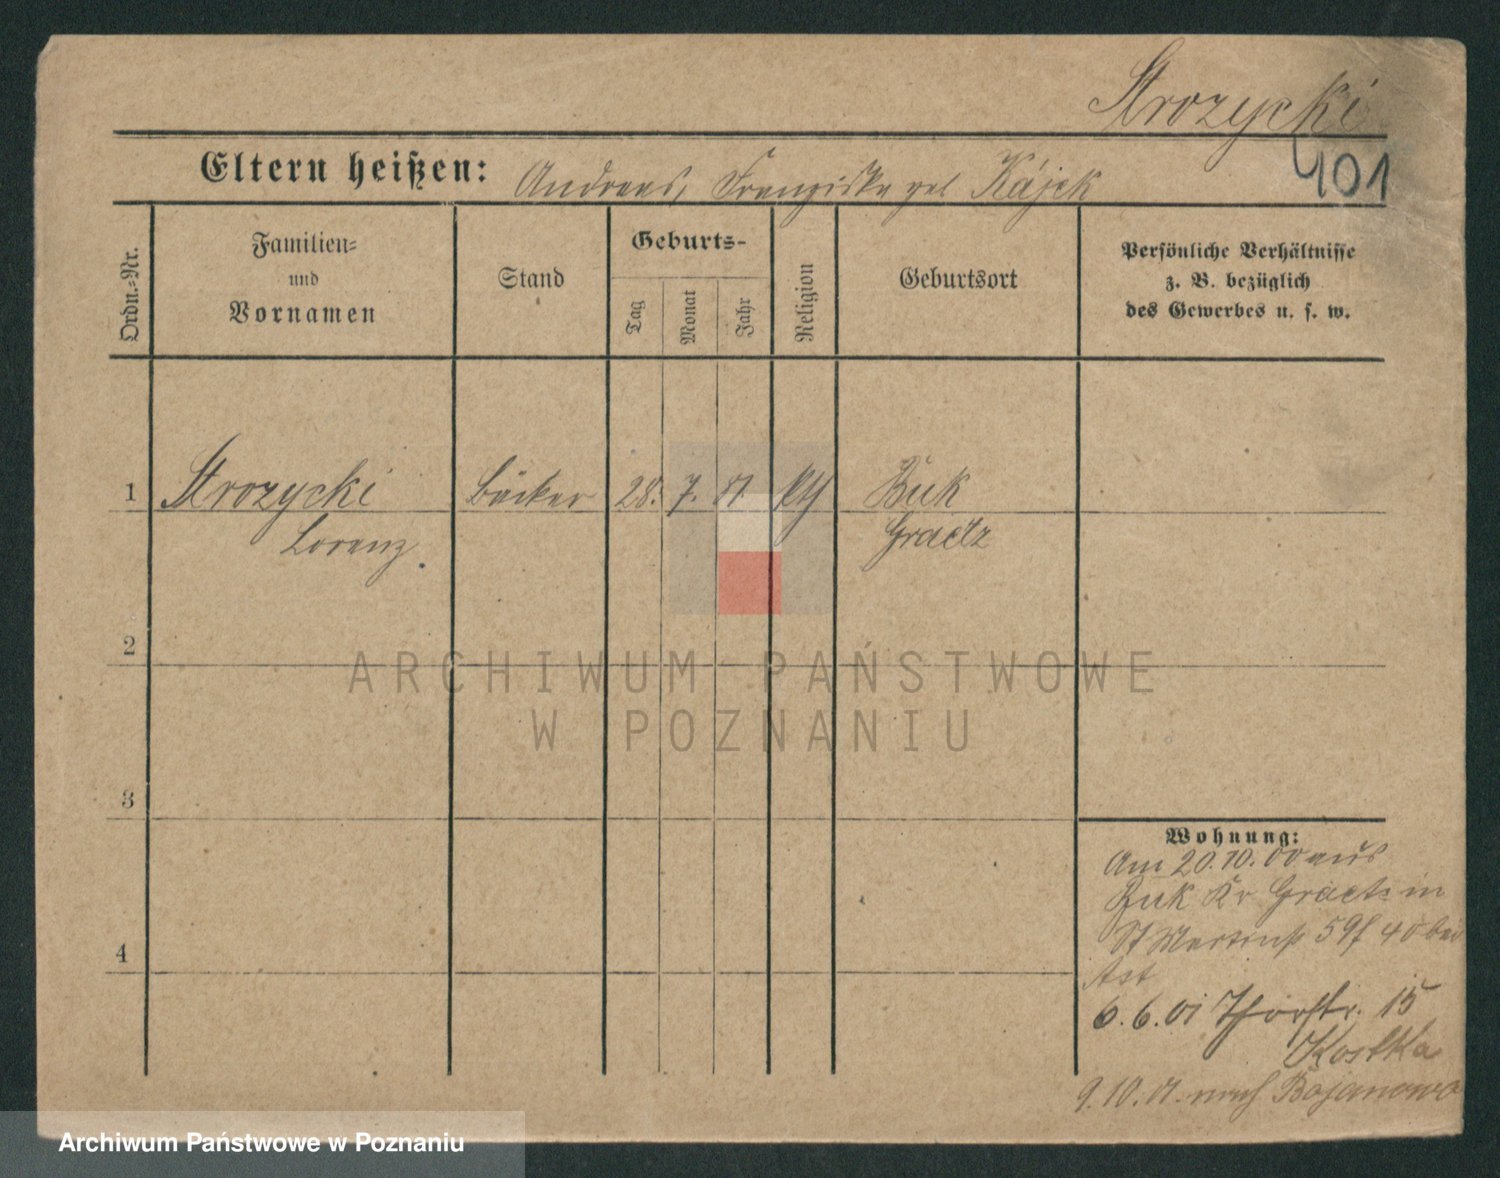 Strozycki
401
Eltern heißen: Andreas, Franziska geb Kájek
Ordn.-Nr.
Familien-
und
Vornamen
Stand
Geburts-
Tag
Monat
Jahr
Religion
Geburtsort
Persönliche Verhältnisse
z. B. bezüglich
des Gewerbes u. s. w.
1 Strozycki Bäcker 28. 7. kth Buk
Lorenz. Graetz
2
ARCHIWUM PAŃSTWOWE
W POZNANIU
3
Wohnung:
Am 20.10.00 aus
Buk Kr Graetz in
St Martinstr 59 40 bei
6.6.01 Thorstr. 15
Kostka
9.10.01. nach Bojanowo
4
Archiwum Państwowe w Poznaniu